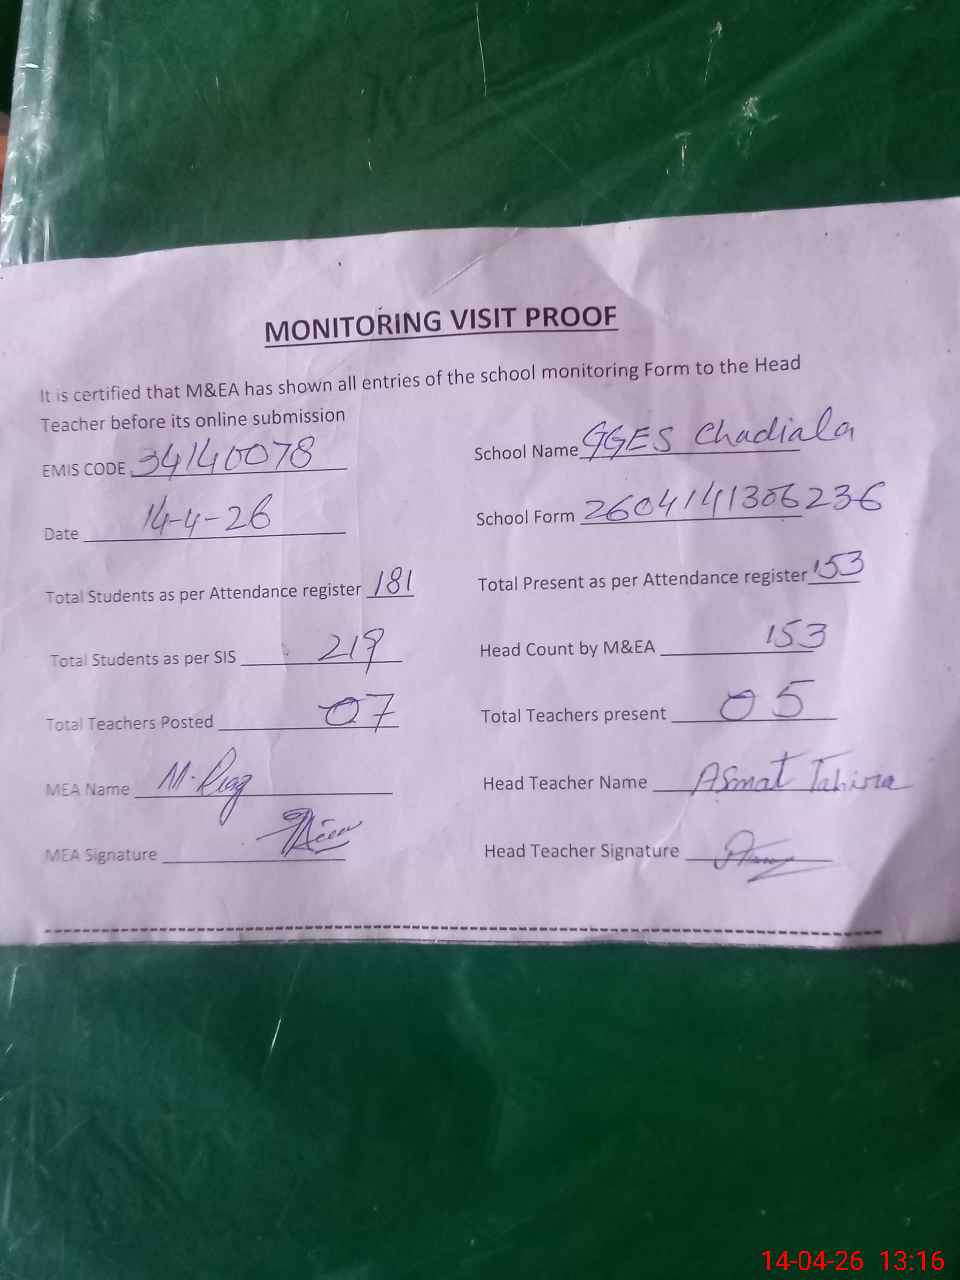 MONITORING VISIT PROOF
It is certified that M&EA has shown all entries of the school monitoring Form to the Head
Teacher before its online submission
EMIS CODE 34140078 School Name GGES Chadiala
Date 14-4-26 School Form 2604141306236
Total Students as per Attendance register 181 Total Present as per Attendance register 153
Total Students as per SIS 219 Head Count by M&EA 153
Total Teachers Posted 07 Total Teachers present 05
MEA Name M. Riaz Head Teacher Name Asmat Tahira
MEA Signature Head Teacher Signature
14-04-26 13:16